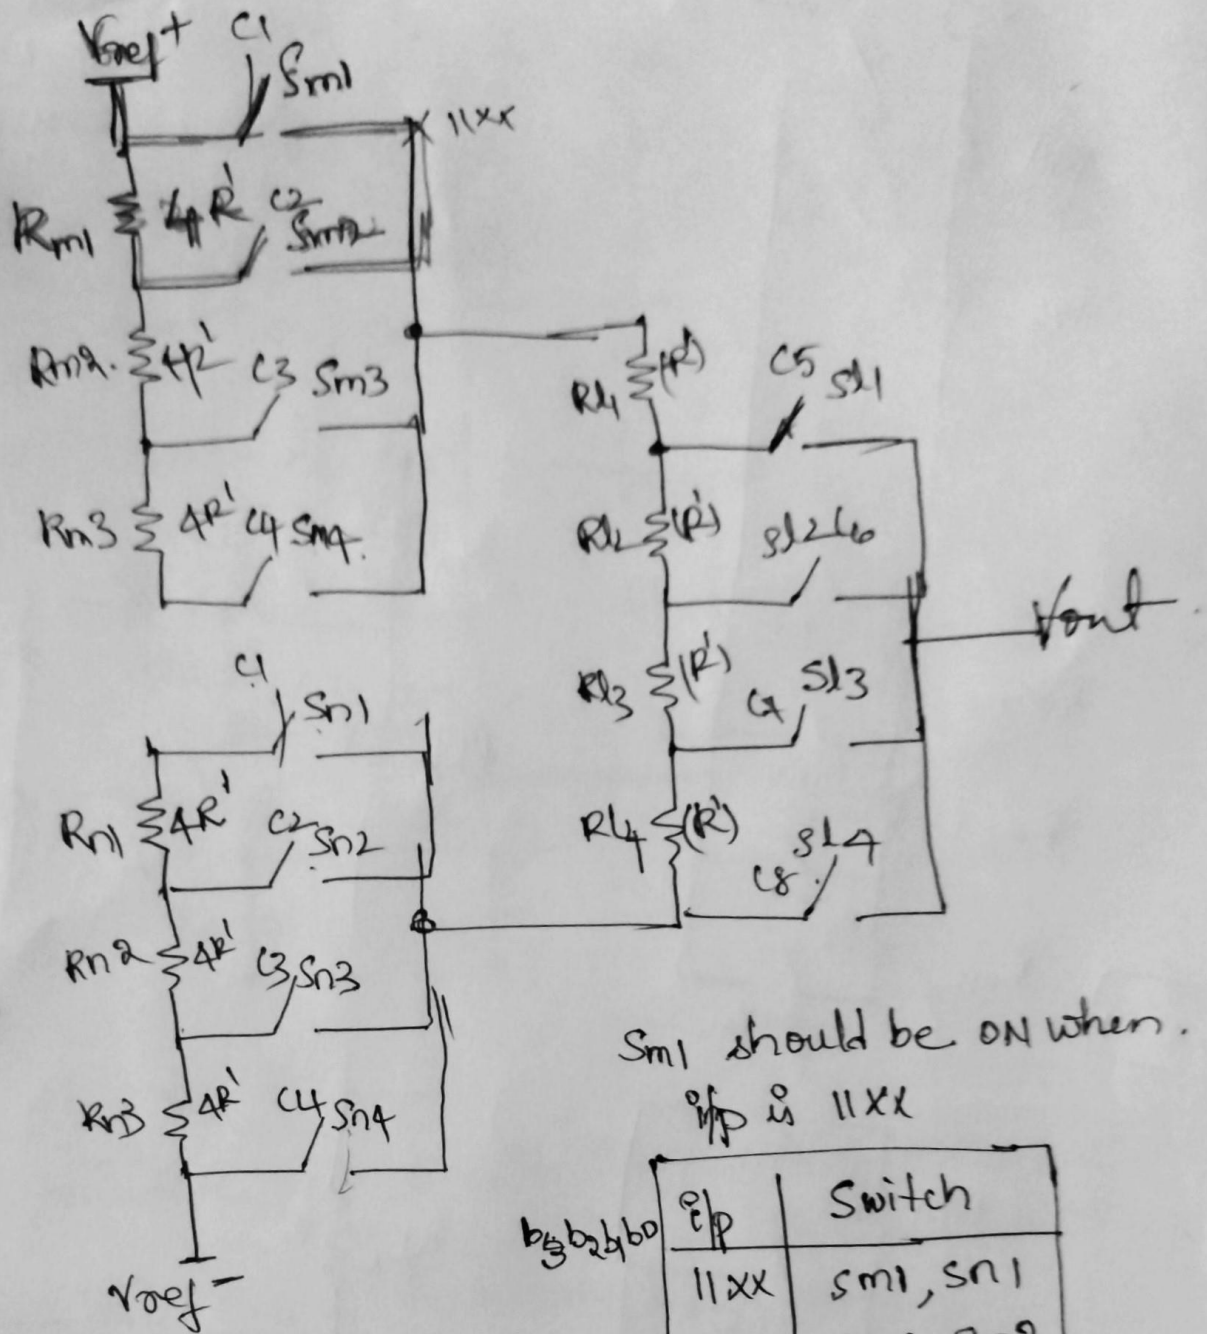 Vref+ C1 Sm1
11xx
Rm1 4R' C2 Sm2
Rm2 4R' C3 Sm3
Rm3 4R' C4 Sm4
Rl1 (R') C5 Sl1
Rl2 (R') Sl2 C6
Vout
Rl3 (R') C7 Sl3
Rl4 (R') C8 Sl4
C1 Sn1
Rn1 4R' C2 Sn2
Rn2 4R' C3 Sn3
Rn3 4R' C4 Sn4
Vref-
Sm1 should be ON when.
i/p is 11XX
b3b2b1b0 i/p Switch
11XX Sm1, Sn1